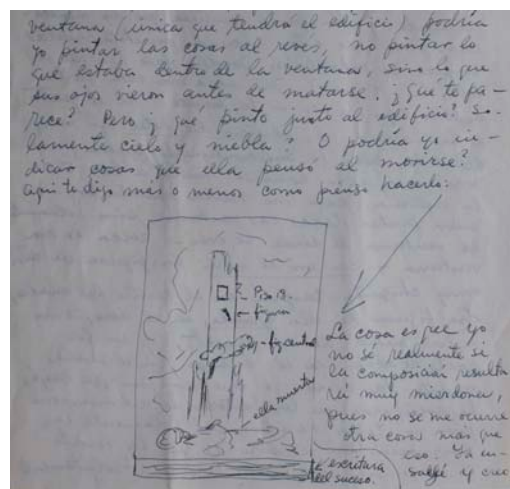 ventana (única que tendrá el edificio) podría
yo pintar las cosas al revés, no pintar lo
que estaba dentro de la ventana, sino lo que
sus ojos vieron antes de matarse. ¿Qué te pa-
rece? Pero ¿qué pinto junto al edificio? So-
lamente cielo y niebla? O podría yo in-
dicar cosas que ella pensó al morirse?
Aquí te digo más o menos como pienso hacerlo:
Piso 18.
figura
fig central
ella muerta
escritura
del suceso.
La cosa es que yo
no sé realmente si
la composición resulta
rá muy mierdona,
pues no se me ocurre
otra cosa más que
eso. Ya en-
y creo